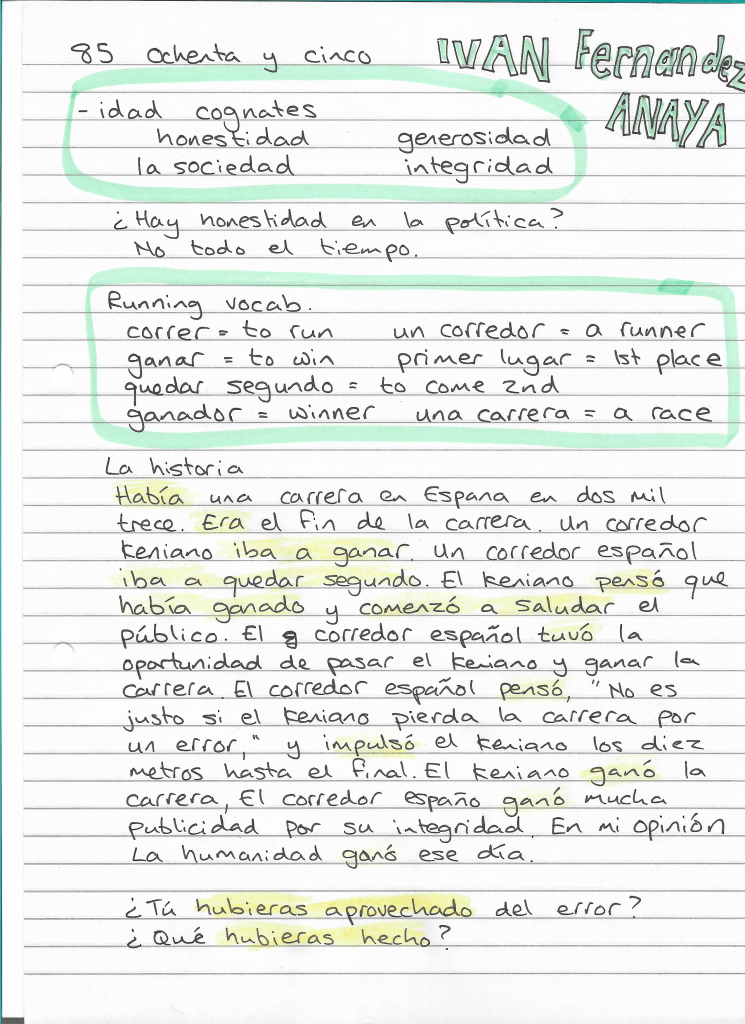 85 ochenta y cinco
IVAN Fernandez
ANAYA
-idad cognates
honestidad generosidad
la sociedad integridad
¿Hay honestidad en la política?
No todo el tiempo.
Running vocab.
correr = to run un corredor = a runner
ganar = to win primer lugar = 1st place
quedar segundo = to come 2nd
ganador = winner una carrera = a race
La historia
Había una carrera en Espana en dos mil
trece. Era el fin de la carrera. Un corredor
keniano iba a ganar. Un corredor español
iba a quedar segundo. El keniano pensó que
había ganado y comenzó a saludar el
público. El corredor español tuvó la
oportunidad de pasar el keniano y ganar la
carrera. El corredor español pensó, "No es
justo si el keniano pierda la carrera por
un error," y impulsó el keniano los diez
metros hasta el final. El keniano ganó la
carrera, El corredor españo ganó mucha
publicidad por su integridad. En mi opinión
La humanidad ganó ese día.
¿Tú hubieras aprovechado del error?
¿Qué hubieras hecho?